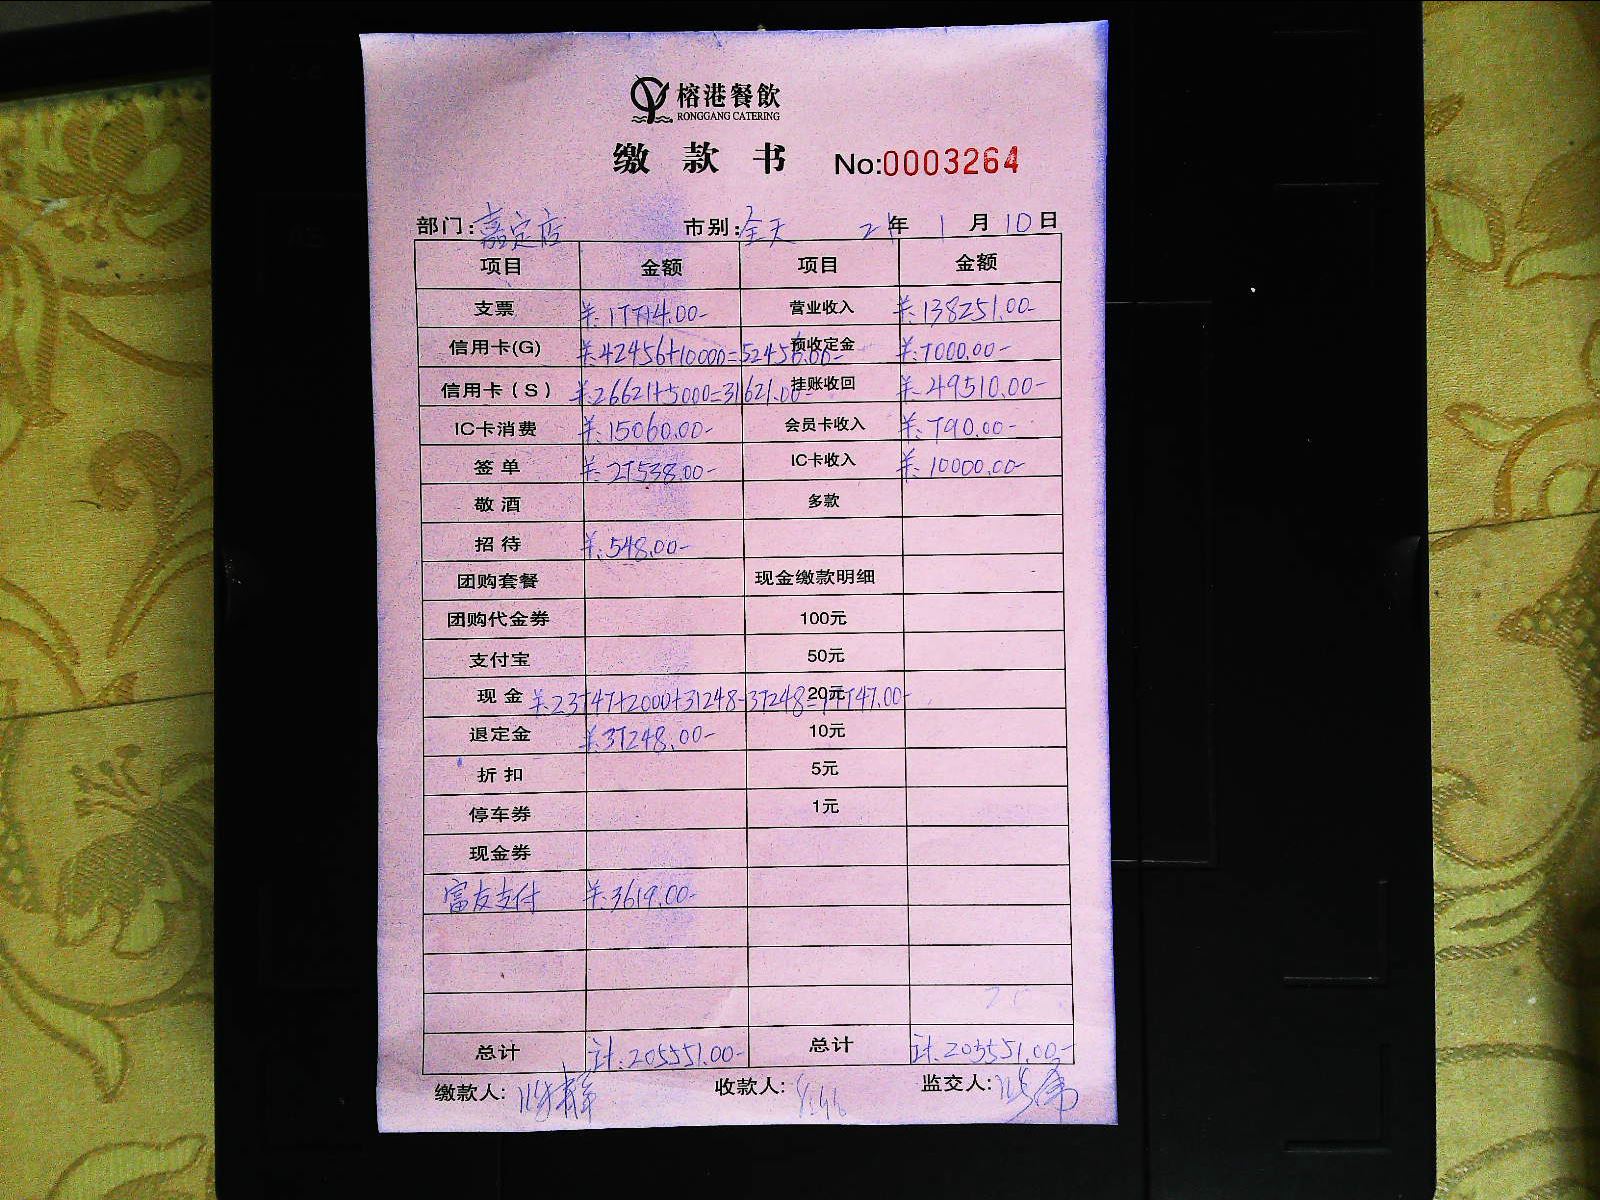 榕港餐飲
RONGGANG CATERING
缴款书 No:0003264
部门:嘉定店 市别:全天 21年1月10日
项目 金额 项目 金额
支票 ¥:17714.00- 营业收入 ¥:138251.00-
信用卡(G) ¥:42456+10000=52456.00- 预收定金 ¥:7000.00-
信用卡(S) ¥:26621+5000=31621.00- 挂账收回 ¥:49510.00-
IC卡消费 ¥:15060.00- 会员卡收入 ¥:790.00-
签单 ¥:27538.00- IC卡收入 ¥:10000.00-
敬酒 多款
招待 ¥:548.00-
团购套餐 现金缴款明细
团购代金券 100元
支付宝 50元
现金 ¥:23747+2000+31248-37248=19747.00- 20元
退定金 ¥:37248.00- 10元
折扣 5元
停车券 1元
现金券
富友支付 ¥:3619.00-
总计 计:205551.00- 总计 计:205551.00-
缴款人: 收款人: 监交人: